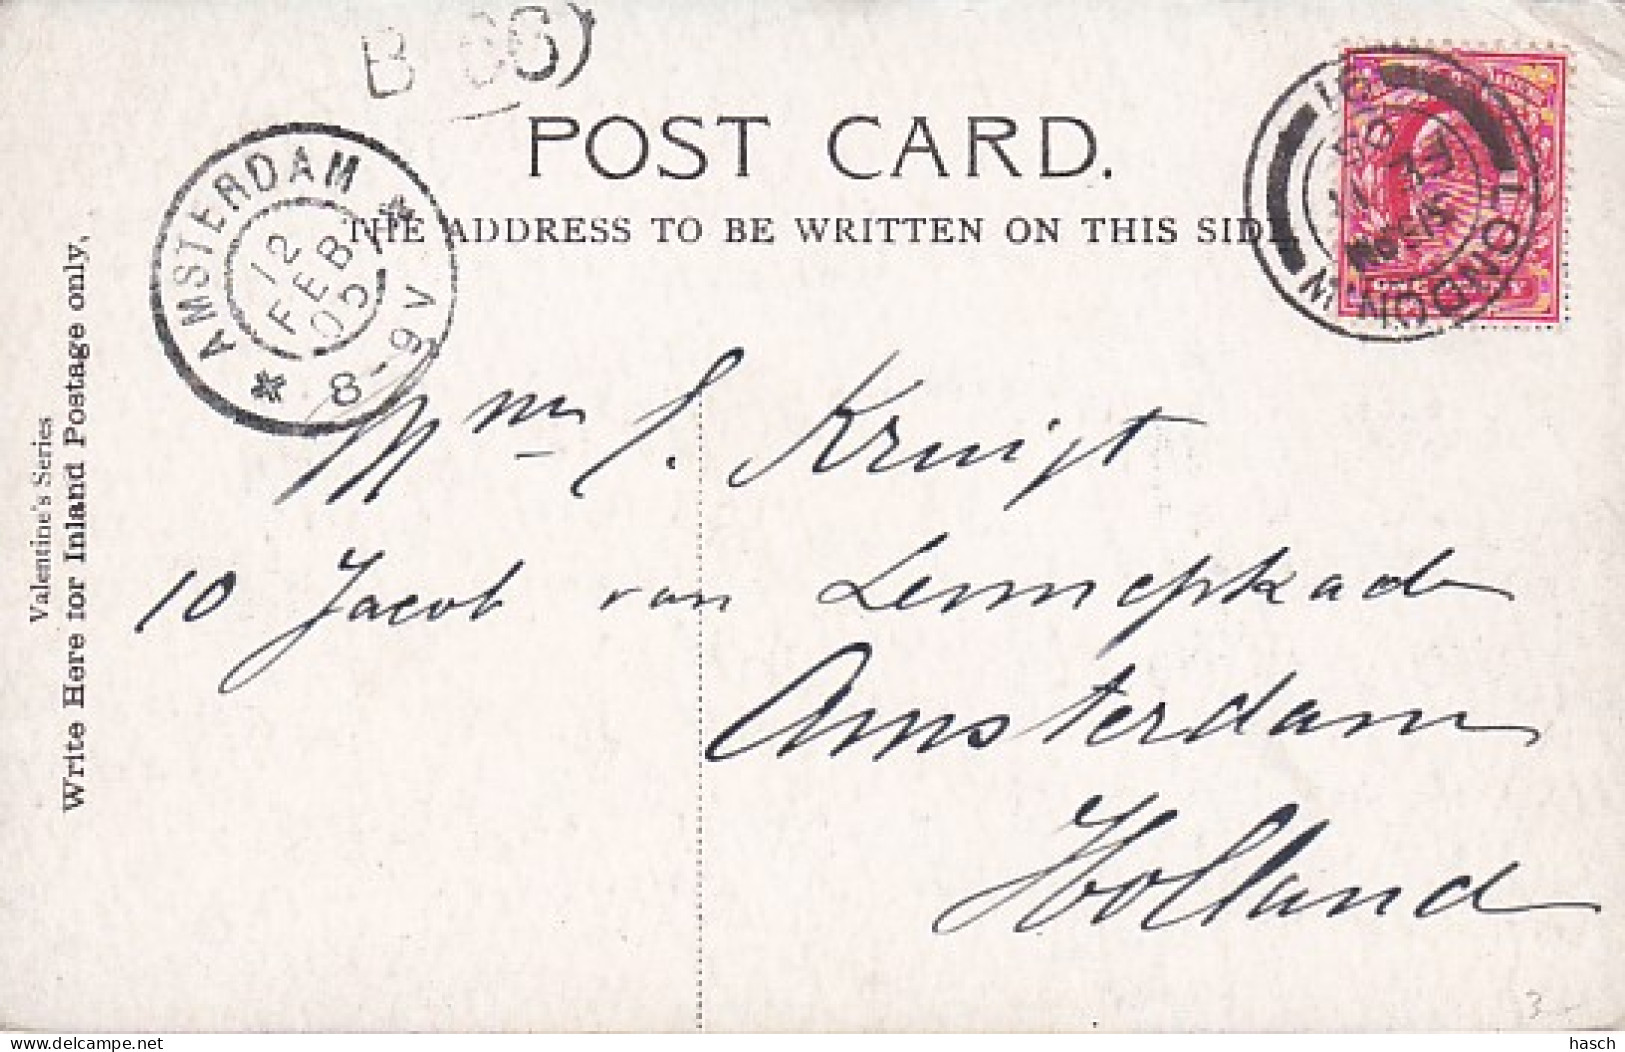 B 36)
POST CARD.
THE ADDRESS TO BE WRITTEN ON THIS SIDE
AMSTERDAM
12
FEB
05
8-9V
LONDON.W
11
FE
05
Valentine's Series
Write Here for Inland Postage only.
Mme S. Kruijt
10 Jacob van Lennepkade
Amsterdam
Holland
3-
hasch